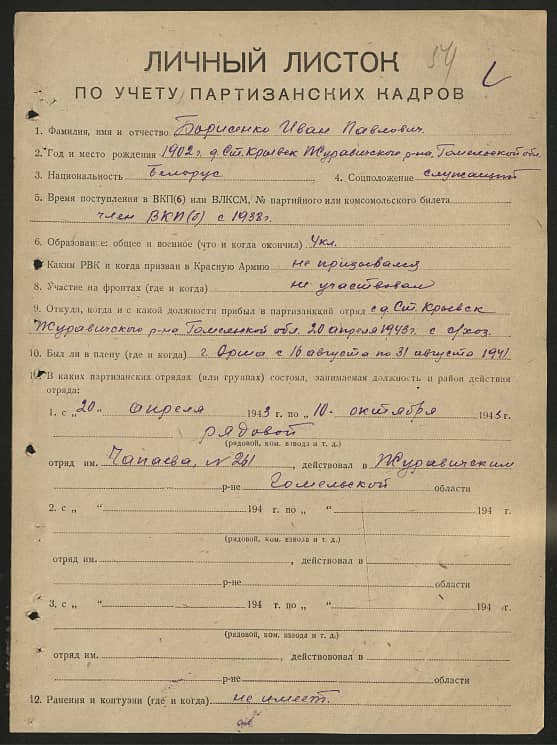 54
ЛИЧНЫЙ ЛИСТОК
ПО УЧЕТУ ПАРТИЗАНСКИХ КАДРОВ
1. Фамилия, имя и отчество Борисенко Иван Павлович
2. Год и место рождения 1902 г. д. Ст. Крывск Журавичского р-на, Гомельской обл.
3. Национальность белорус 4. Соцположение служащий
5. Время поступления в ВКП(б) или ВЛКСМ, № партийного или комсомольского билета
член ВКП(б) с 1938 г.
6. Образование: общее и военное (что и когда окончил) 4 кл.
7. Каким РВК и когда призван в Красную Армию не призывался
8. Участие на фронтах (где и когда) не участвовал
9. Откуда, когда и с какой должности прибыл в партизанский отряд с д. Ст. Крывск
Журавичского р-на Гомельской обл. 20 апреля 1943 г. с с/хоз.
10. Был ли в плену (где и когда) г. Орша с 16 августа по 31 августа 1941
11. В каких партизанских отрядах (или группах) состоял, занимаемая должность и район действия
отряда:
1. с „20" апреля 1943 г. по „10" октября 1943 г.
рядовой
(рядовой, ком. взвода и т. д.)
отряд им. Чапаева, N 261, действовал в Журавичским
р-не Гомельской области
2. с „ " 194 г. по „ " 194 г.
(рядовой, ком. взвода и т. д.)
отряд им. , действовал в
р-не области
3. с „ " 194 г. по „ " 194 г.
(рядовой, ком. взвода и т. д.)
отряд им. , действовал в
р-не области
12. Ранения и контузии (где и когда) не имеет.